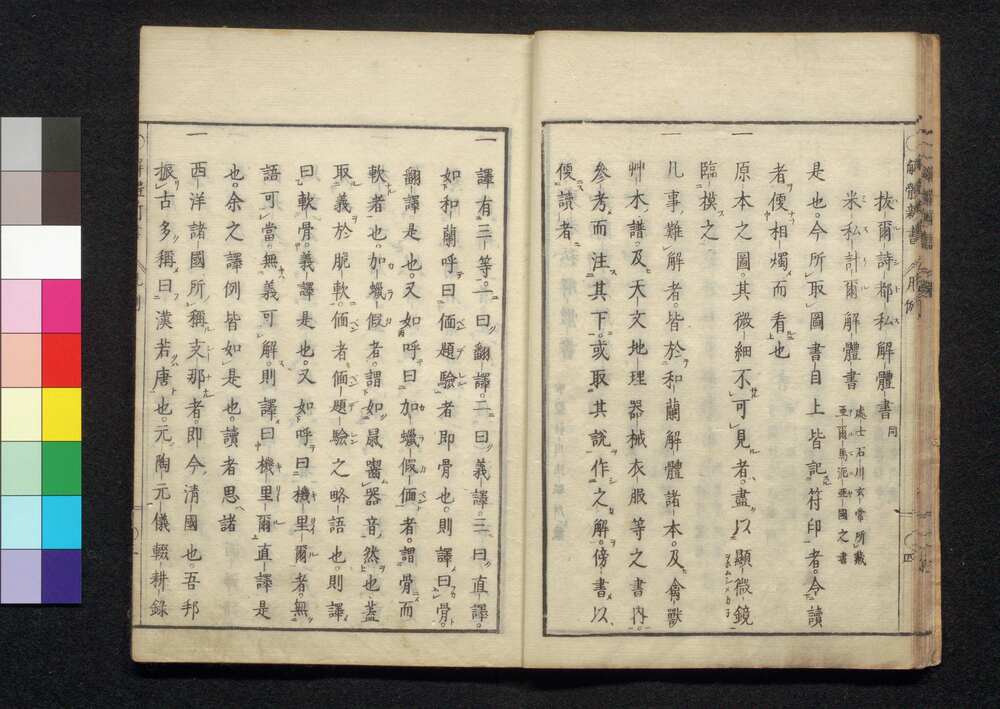 拔爾詩都私解體書 同
米私計爾解體書 處士石川玄常所藏
亞爾馬泥亞國之書
是也。今所取圖書目上皆記符印者。令讀
者便相燭而看也
一 原本之圖。其微細不可見者。盡以顯微鏡
臨模之
一 凡事難解者。皆於和蘭解體諸本。及禽獸
艸木譜。及天文地理器械衣服等之書內。
參考而注其下。或取其說作之解。傍書以
便讀者
一 譯有三等。一曰翻譯。二曰義譯。三曰直譯。
如和蘭呼曰価題驗者即骨也。則譯曰骨。
翻譯是也。又如呼曰加蠟假価者。謂骨而
軟者也。加蠟假者。謂如鼠囓器音然也。蓋
取義於脆軟。価者価題驗之略語也。則譯
曰軟骨。義譯是也。又如呼曰機里爾者。無
語可當。無義可解。則譯曰機里爾。直譯是
也。余之譯例皆如是也。讀者思諸
一 西洋諸國所稱支那者即今清國也。吾邦
振古多稱曰漢若唐也。元陶元儀輟耕錄
解體新書 凡例 四